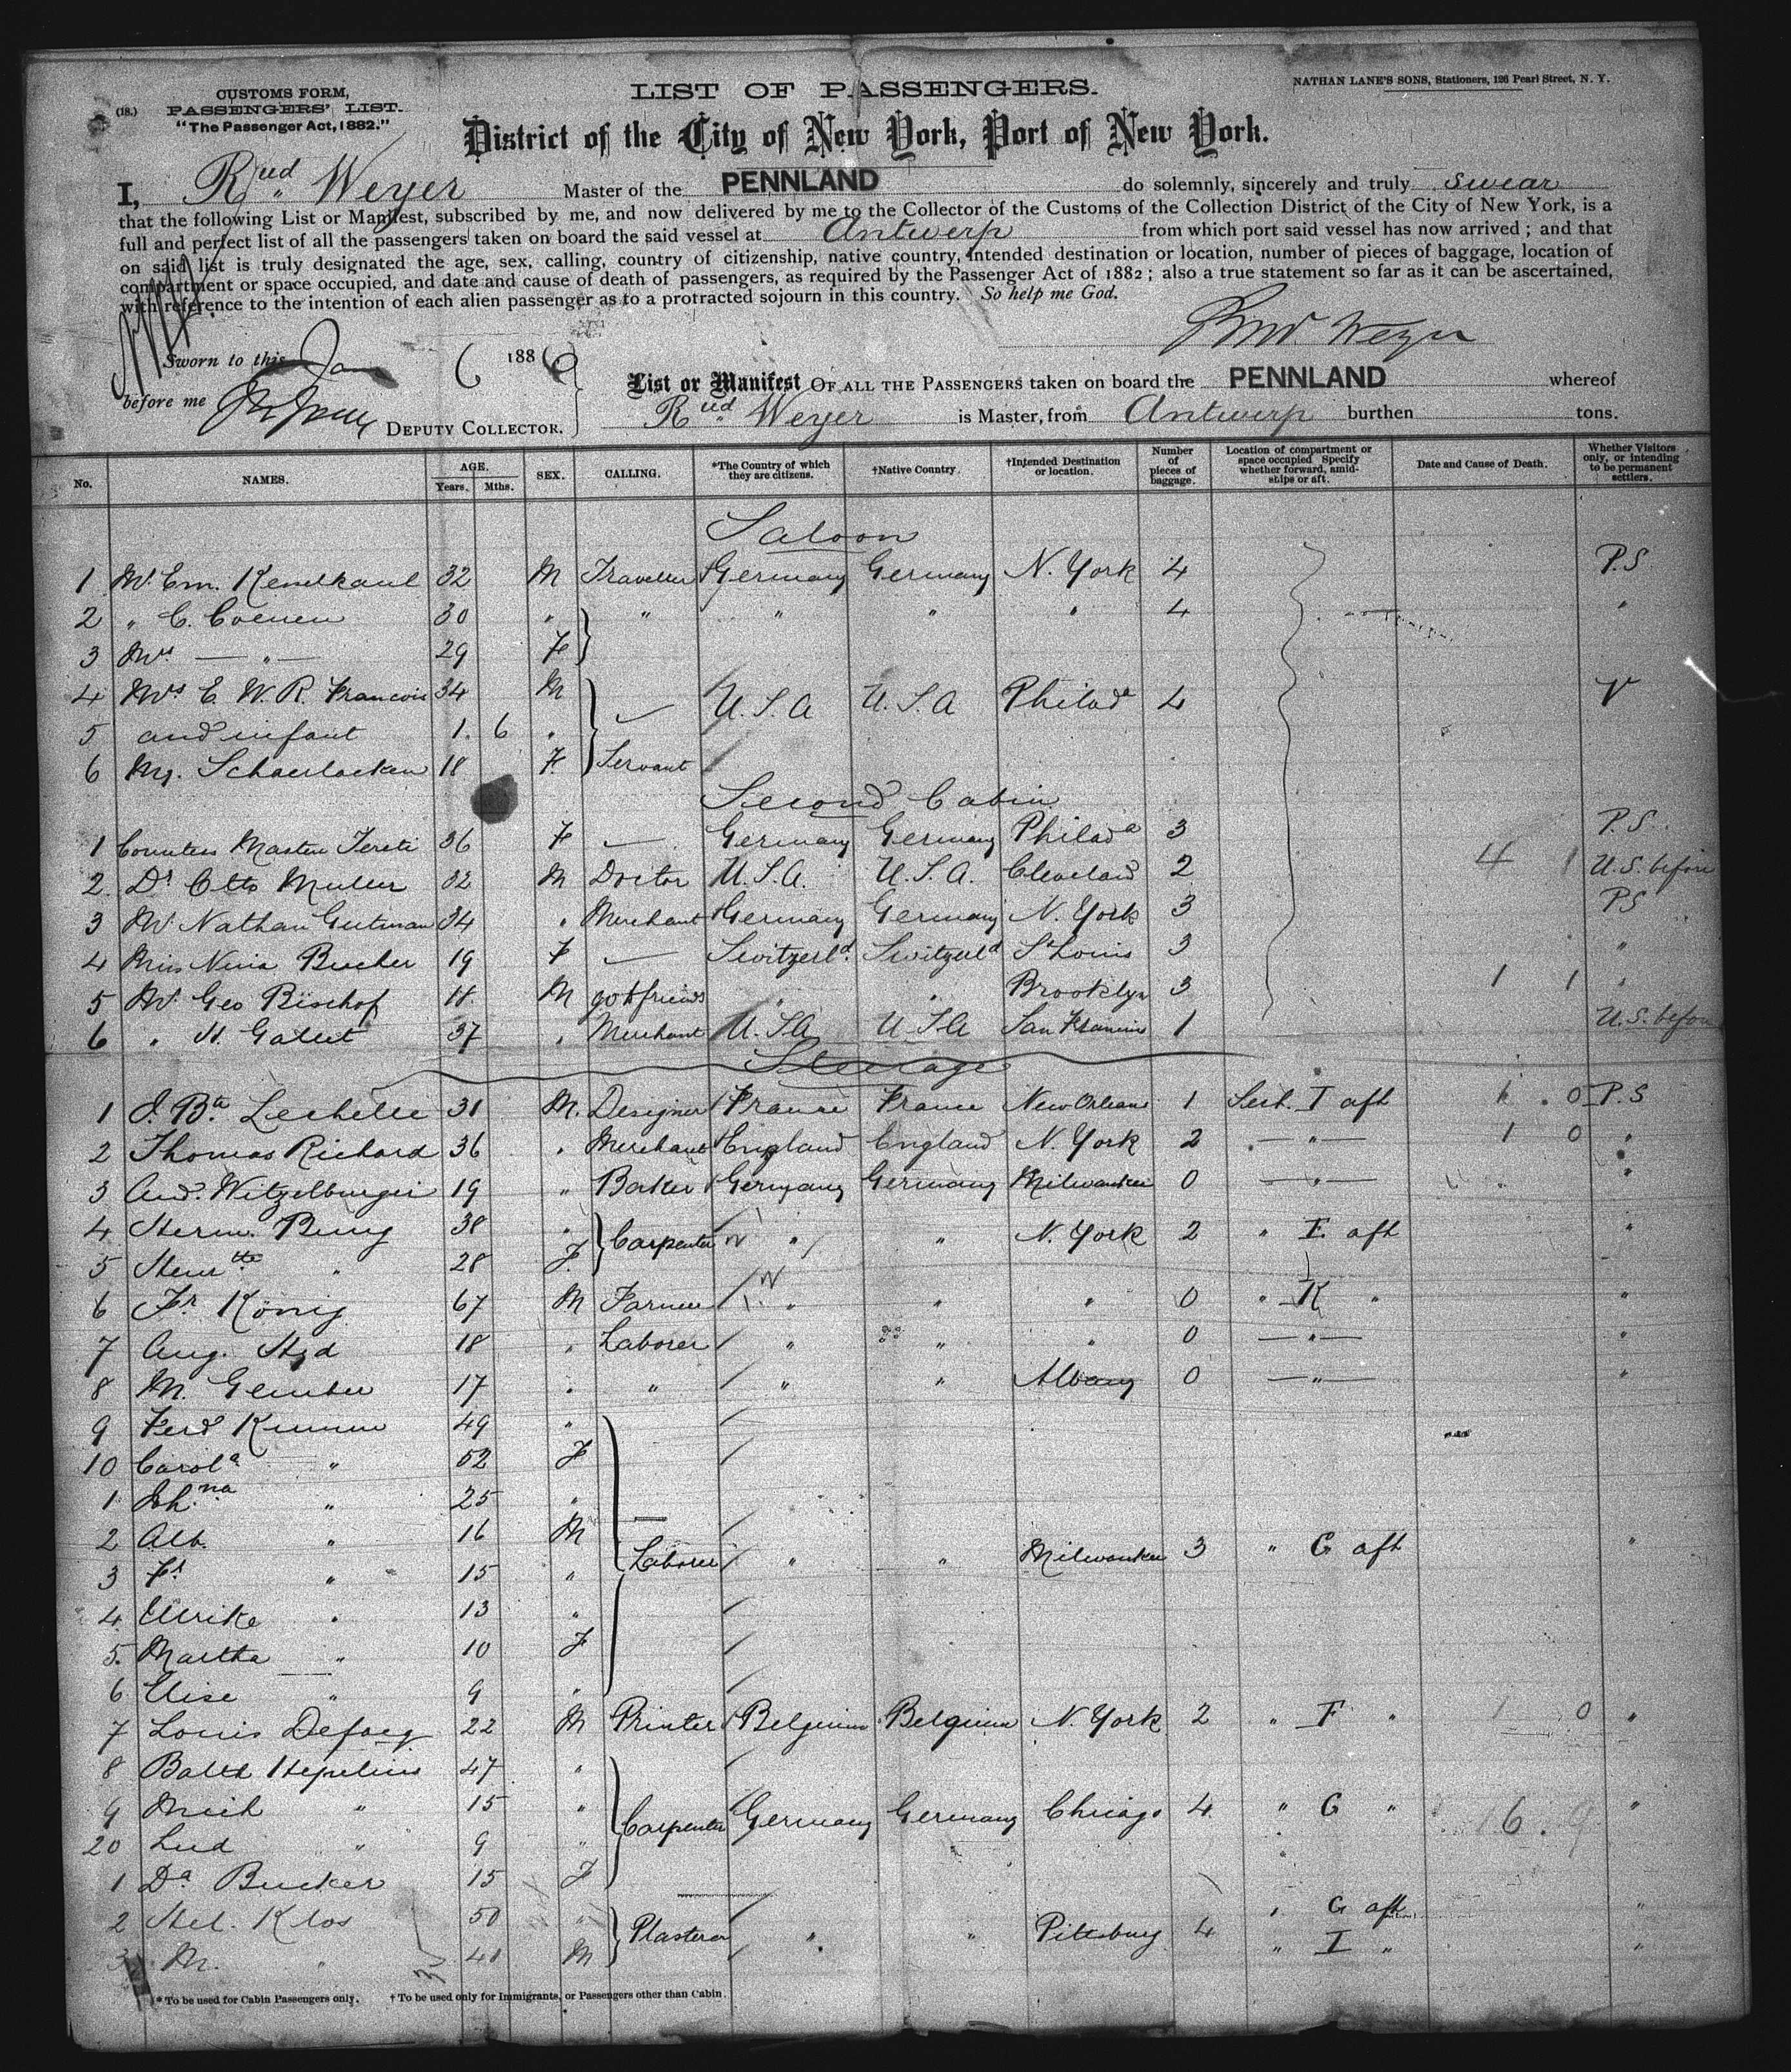 CUSTOMS FORM,
(18.) PASSENGERS' LIST.
"The Passenger Act, 1882."
LIST OF PASSENGERS.
NATHAN LANE'S SONS, Stationers, 126 Pearl Street, N. Y.
District of the City of New York, Port of New York.
I, Rud Weyer Master of the PENNLAND do solemnly, sincerely and truly swear
that the following List or Manifest, subscribed by me, and now delivered by me to the Collector of the Customs of the Collection District of the City of New York, is a
full and perfect list of all the passengers taken on board the said vessel at Antwerp from which port said vessel has now arrived ; and that
on said list is truly designated the age, sex, calling, country of citizenship, native country, intended destination or location, number of pieces of baggage, location of
compartment or space occupied, and date and cause of death of passengers, as required by the Passenger Act of 1882 ; also a true statement so far as it can be ascertained,
with reference to the intention of each alien passenger as to a protracted sojourn in this country. So help me God.
Rud Weyer
Sworn to this Jan 6 1886
before me DEPUTY COLLECTOR.
List or Manifest OF ALL THE PASSENGERS taken on board the PENNLAND whereof
Rud Weyer is Master, from Antwerp burthen tons.
No. NAMES. AGE. Years. Mths. SEX. CALLING. *The Country of which they are citizens. †Native Country. †Intended Destination or location. Number of pieces of baggage. Location of compartment or space occupied Specify whether forward, amidships or aft. Date and Cause of Death. Whether Visitors only, or intending to be permanent settlers.
Saloon
1 Mr Em. 32 M Traveller Germany Germany N. York 4 P.S
2 " C. Coenen 30 " " " " " 4 "
3 Mrs — " — 29 F
4 Mrs E. W. R. Francois 34 M U.S.A U.S.A Philada 4 V
5 and infant 1. 6 "
6 18 F Servant
Second Cabin
1 Countess 36 F — Germany Germany Philada 3 P.S.
2 Dr Otto Muller 32 M Doctor U.S.A. U.S.A. Cleveland 2 4 1 U.S. before
3 Mr Nathan Gutman 34 " Merchant Germany Germany N. York 3 PS
4 Miss Nina Bucher 19 F — Switzerld. Switzerld St Louis 3 "
5 Mr Geo Bischof M " " Brooklyn 3 1 1 "
6 " 37 " Merchant U.S.A U.S.A San Francisco 1 U.S. before
Steerage
1 J. Bte 31 M. Designer France France New Orleans 1 Sect. I aft 0 P.S
2 Thomas Richard 36 " Merchant England England N. York 2 — " — 1 0 "
3 And. Witzelburger 19 " Germany Germany Milwaukee 0 — " — "
4 Herm. 38 " Carpenter " " N. York 2 " E aft "
5 Henrtte " 28 F.
6 Fr König 67 M Farmer " " " 0 " K " "
7 Aug. 18 " Laborer " " " 0 — " — "
8 M. 17 " " " " Albany 0 — " — "
9 Ferd 49 "
10 Carola " 52 F
1 Johna " 25 "
2 Alb. " 16 M
3 Fr " 15 " Laborer " " Milwaukee 3 " G aft "
4 Ulrike " 13 "
5. Martha " 10 F
6 Elise " 9 "
7 Louis 22 M Printer Belgium Belgium N. York 2 " F " 1 0 "
8 Balth 47 "
9 Mich " 15 " Carpenter Germany Germany Chicago 4 " G " 6. 9 "
20 Lud " 9 "
1 Da Bucker 15 F
2 Hel. Klos 50 " Plasterer " " Pittsburg 4 " G aft "
3 M. " M " I " "
* To be used for Cabin Passengers only. † To be used only for Immigrants, or Passengers other than Cabin.